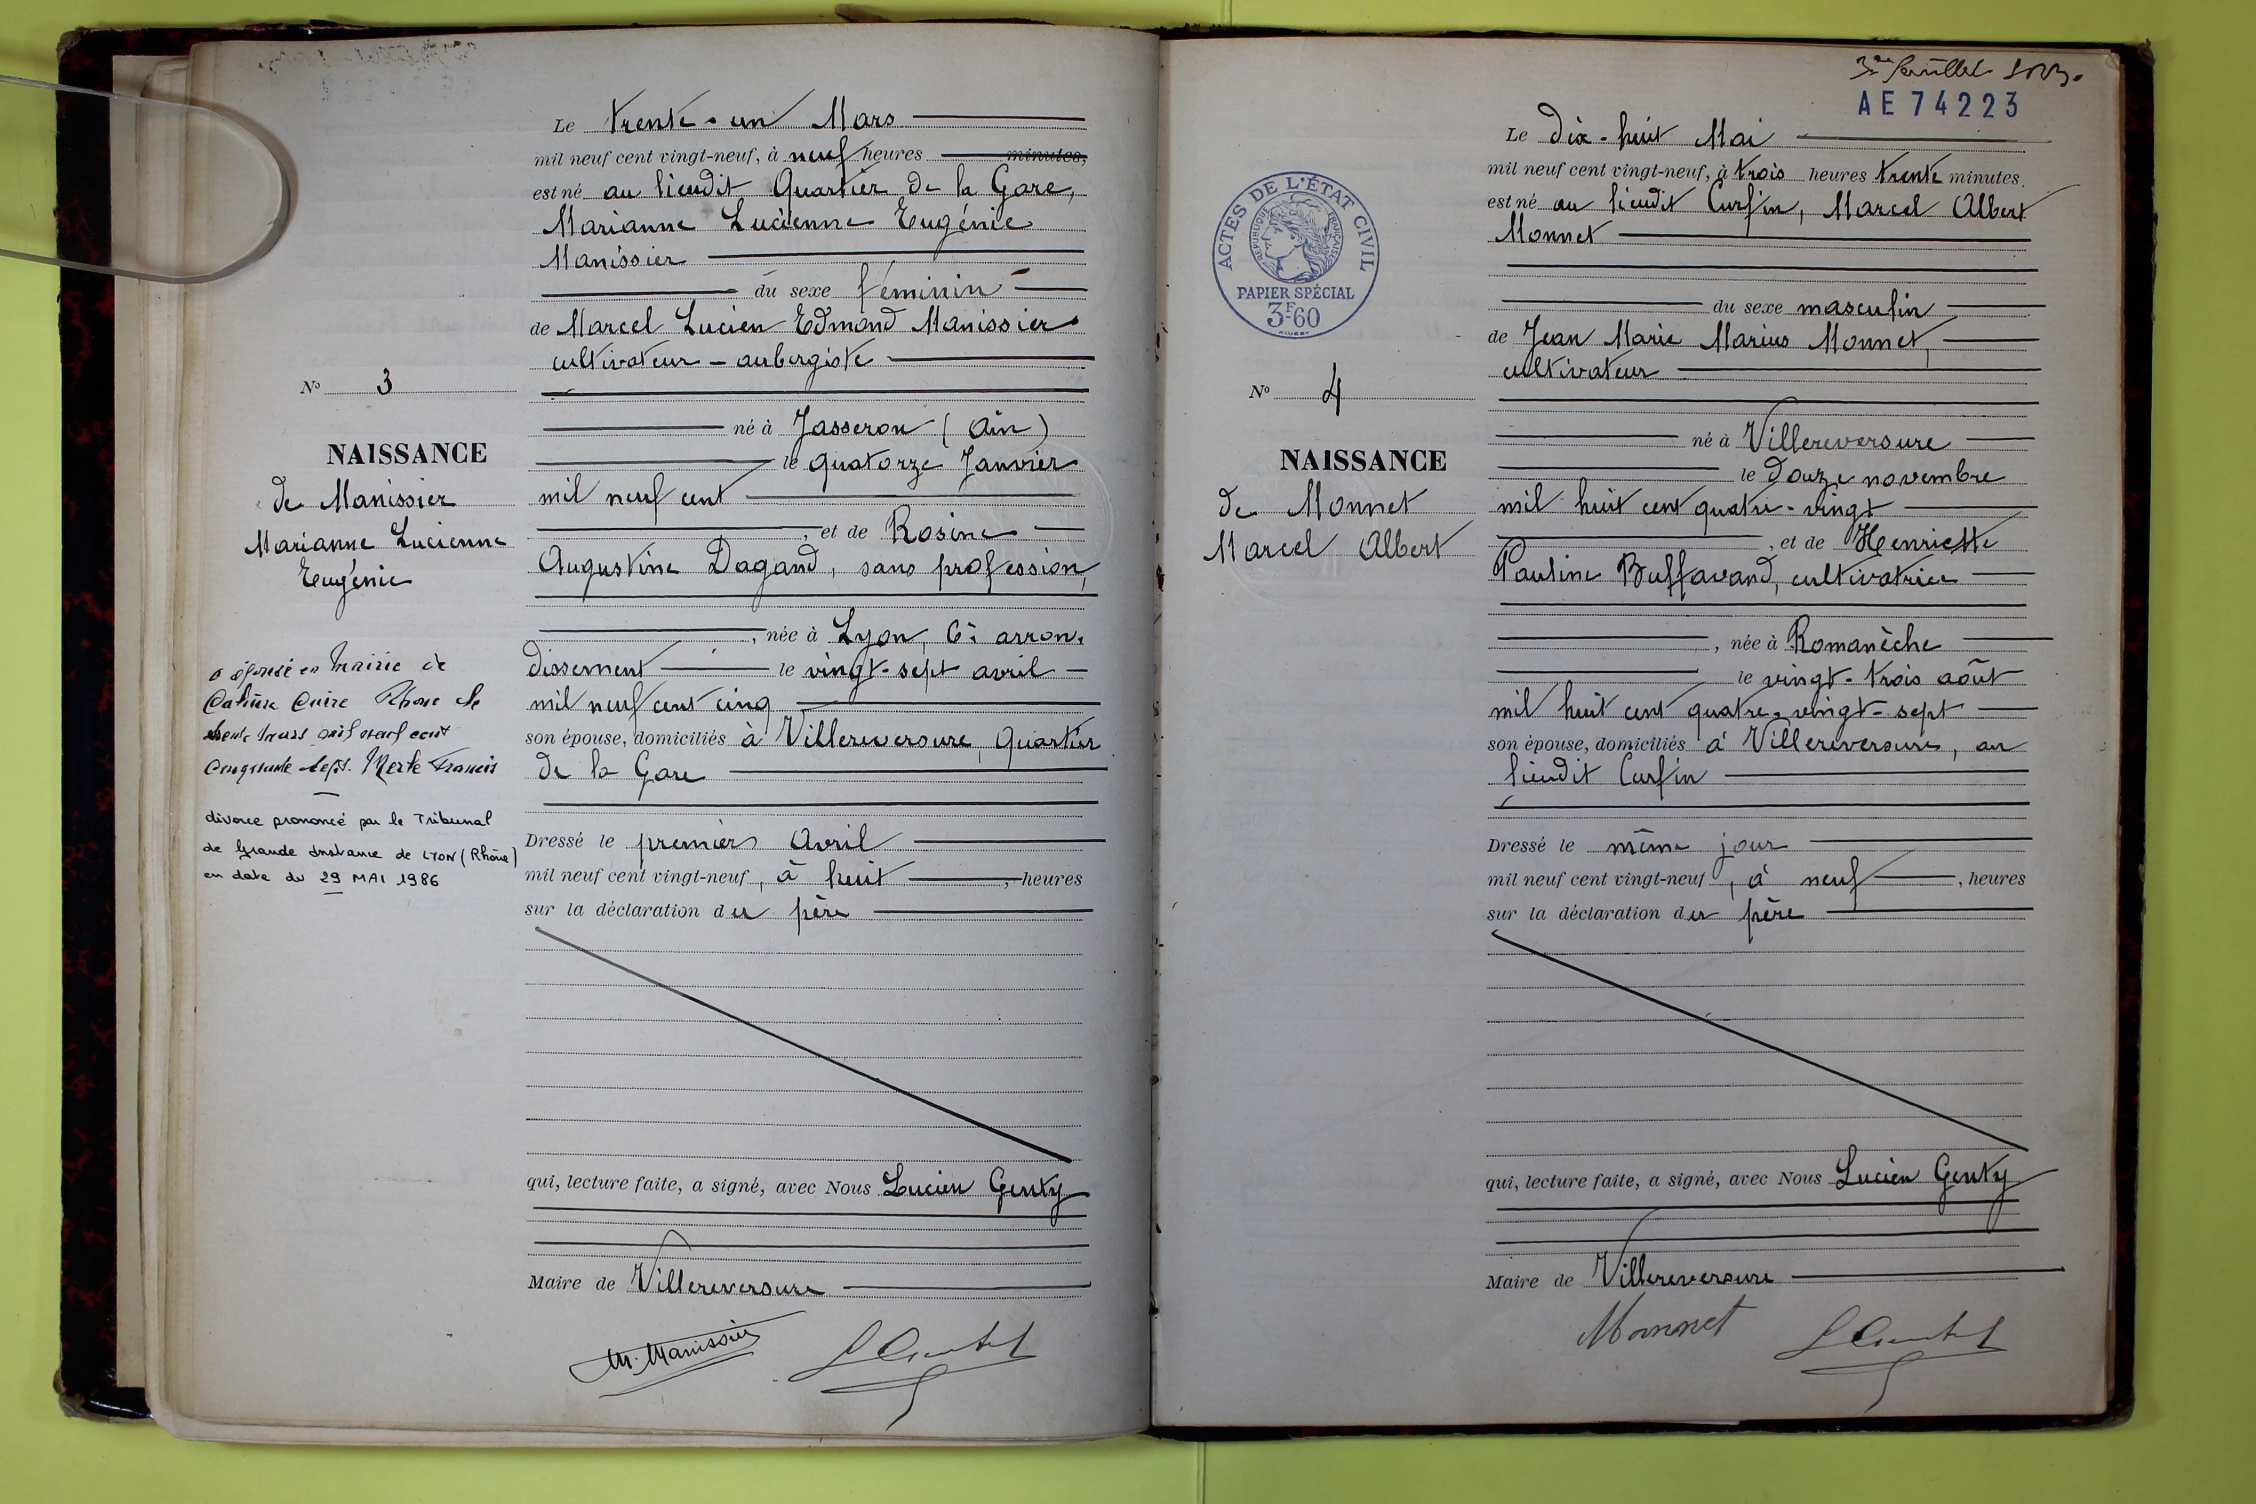 Le trente-un Mars
mil neuf cent vingt-neuf, à neuf heures minutes,
est né au lieudit Quartier de la Gare,
Marianne Lucienne Eugénie
Manissier
du sexe féminin
de Marcel Lucien Edmond Manissier
cultivateur - aubergiste
né à Jasseron (Ain)
le quatorze Janvier
mil neuf cent
, et de Rosine
Augustine Dagand, sans profession,
, née à Lyon, 6e arron-
dissement le vingt-sept avril
mil neuf cent cinq
son épouse, domiciliés à Villereversure, Quartier
de la Gare
Dressé le premier Avril
mil neuf cent vingt-neuf, à huit , heures
sur la déclaration du père
qui, lecture faite, a signé, avec Nous Lucien Genty
Maire de Villereversure
M. Manissier
No 3
NAISSANCE
de Manissier
Marianne Lucienne
Eugénie
a épousé en Mairie de
Caluire Cuire Rhône le
trente mars mil neuf cent
cinquante sept. Merle Francis
divorce prononcé par le Tribunal
de Grande Instance de LYON (Rhône)
en date du 29 MAI 1986
3me feuillet
AE 74223
ACTES DE L'ÉTAT CIVIL
RÉPUBLIQUE FRANÇAISE
PAPIER SPÉCIAL
3F60
Le dix-huit Mai
mil neuf cent vingt-neuf, à trois heures trente minutes.
est né au lieudit Curfin, Marcel Albert
Monnet
du sexe masculin
de Jean Marie Marius Monnet,
cultivateur
né à Villereversure
le douze novembre
mil huit cent quatre-vingt
, et de Henriette
Pauline Buffavand, cultivatrice
, née à Romanèche
le vingt-trois août
mil huit cent quatre-vingt-sept
son épouse, domiciliés à Villereversure, au
lieudit Curfin
Dressé le même jour
mil neuf cent vingt-neuf, à neuf , heures
sur la déclaration du père
qui, lecture faite, a signé, avec Nous Lucien Genty
Maire de Villereversure
Monnet
No 4
NAISSANCE
de Monnet
Marcel Albert